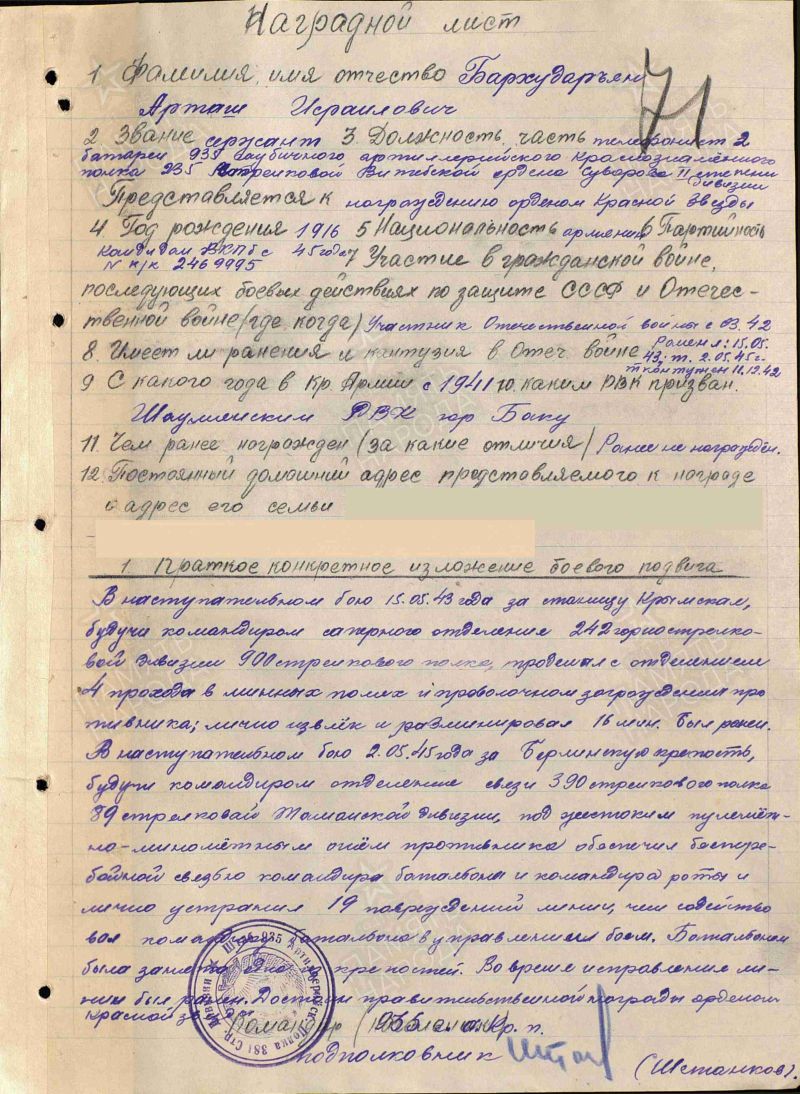 Наградной лист
71
1 Фамилия, имя отчество Бархударьян
Арташ Исраилович
2 Звание сержант 3. Должность, часть телефонист 2
батареи 935 Гаубичного артиллерийского Краснознамённого
полка 235 Стрелковой Витебской ордена Суворова II степени
дивизии
Представляется к награждению орденом Красной Звезды
4. Год рождения 1916 5 Национальность армянин 6 Партийность
Кандидат ВКПб с 45 года 7 Участие в гражданской войне,
N к/к 2469995
последующих боевых действиях по защите СССР и Отечес-
твенной войне (где, когда) Участник Отечественной войны с 03.42
8. Имеет ли ранения и кантузия в Отеч. войне Ранен 1: 15.05.
43. т. 2.05.45 г.
контужен 12.42
9 С какого года в Кр. Армии с 1941 10. каким РВК призван.
Шаумянским РВК гор Баку
11. Чем ранее награжден (за какие отличия) Ранее не награждён.
12. Постоянный домашний адрес представляемого к награде
и адрес его семьи
1. Краткое конкретное изложение боевого подвига
В наступательном бою 15.05.43 года за станицу Крымская,
будучи командиром саперного отделение 242 горнострелко-
вой дивизии 900 стрелкового полка, проделал с отделением
4 прохода в минных полях и проволочном заграждении про
тивника; лично извлёк и разминировал 16 мин. Был ранен.
В наступательном бою 2.05.45 года за Берлинскую крепость,
будучи командиром отделение связи 390 стрелкового полка
89 стрелковай Таманской дивизии, под жестоким пулемёт-
но-миномётным огнём противника обеспечил беспере-
бойной связью командира баталъона и командира роты и
лично устранил 19 повреждений линии, чем содейство
вал команд баталъона в управлении боем. Баталъоном
была занята крепостей. Во время исправление ли-
нии был ранен. Достоин правительственной награды орденом
Красной зв
Командир 935 с. а. Кр. п.
подполковник (Шстанков).